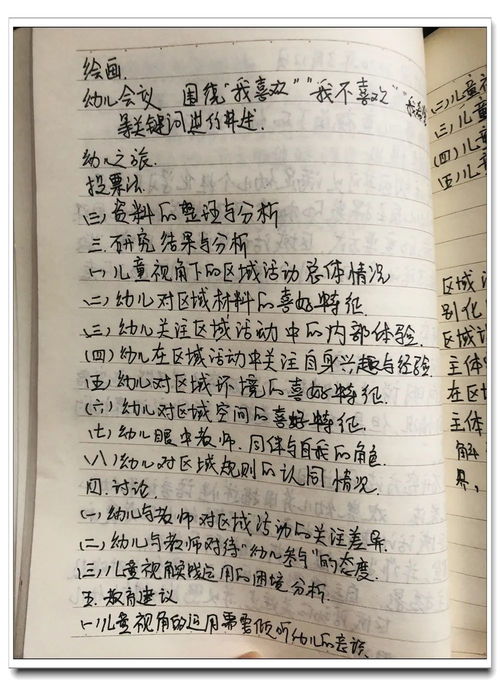 绘画.
幼儿会议 围绕"我喜欢""我不喜欢""我
等关键词进行讲述.
幼儿之旅.
投票法.
(三)资料的整理与分析
三.研究结果与分析
(一)儿童视角下的区域活动总体情况
(二)幼儿对区域材料的喜好特征.
(三)幼儿关注区域活动中的内部体验.
(四)幼儿在区域活动中关注自身兴趣与经验
(五)幼儿对区域环境的喜好特征.
(六)幼儿对区域空间的喜好特征.
(七)幼儿眼中教师、同伴与自我的角色.
(八)幼儿对区域规则的认同情况.
四.讨论.
(一)幼儿与教师对区域活动的关注差异.
(二)幼儿与教师对待"幼儿参与"的态度.
(三)儿童视角实践运用的困境分析.
五.教育建议
(一)儿童视角的运用需要倾听幼儿的表达.
(二)儿童
(三)儿童
(四)儿
(五)儿
区域活
别化
区域
主体
在区
主体
解
界,